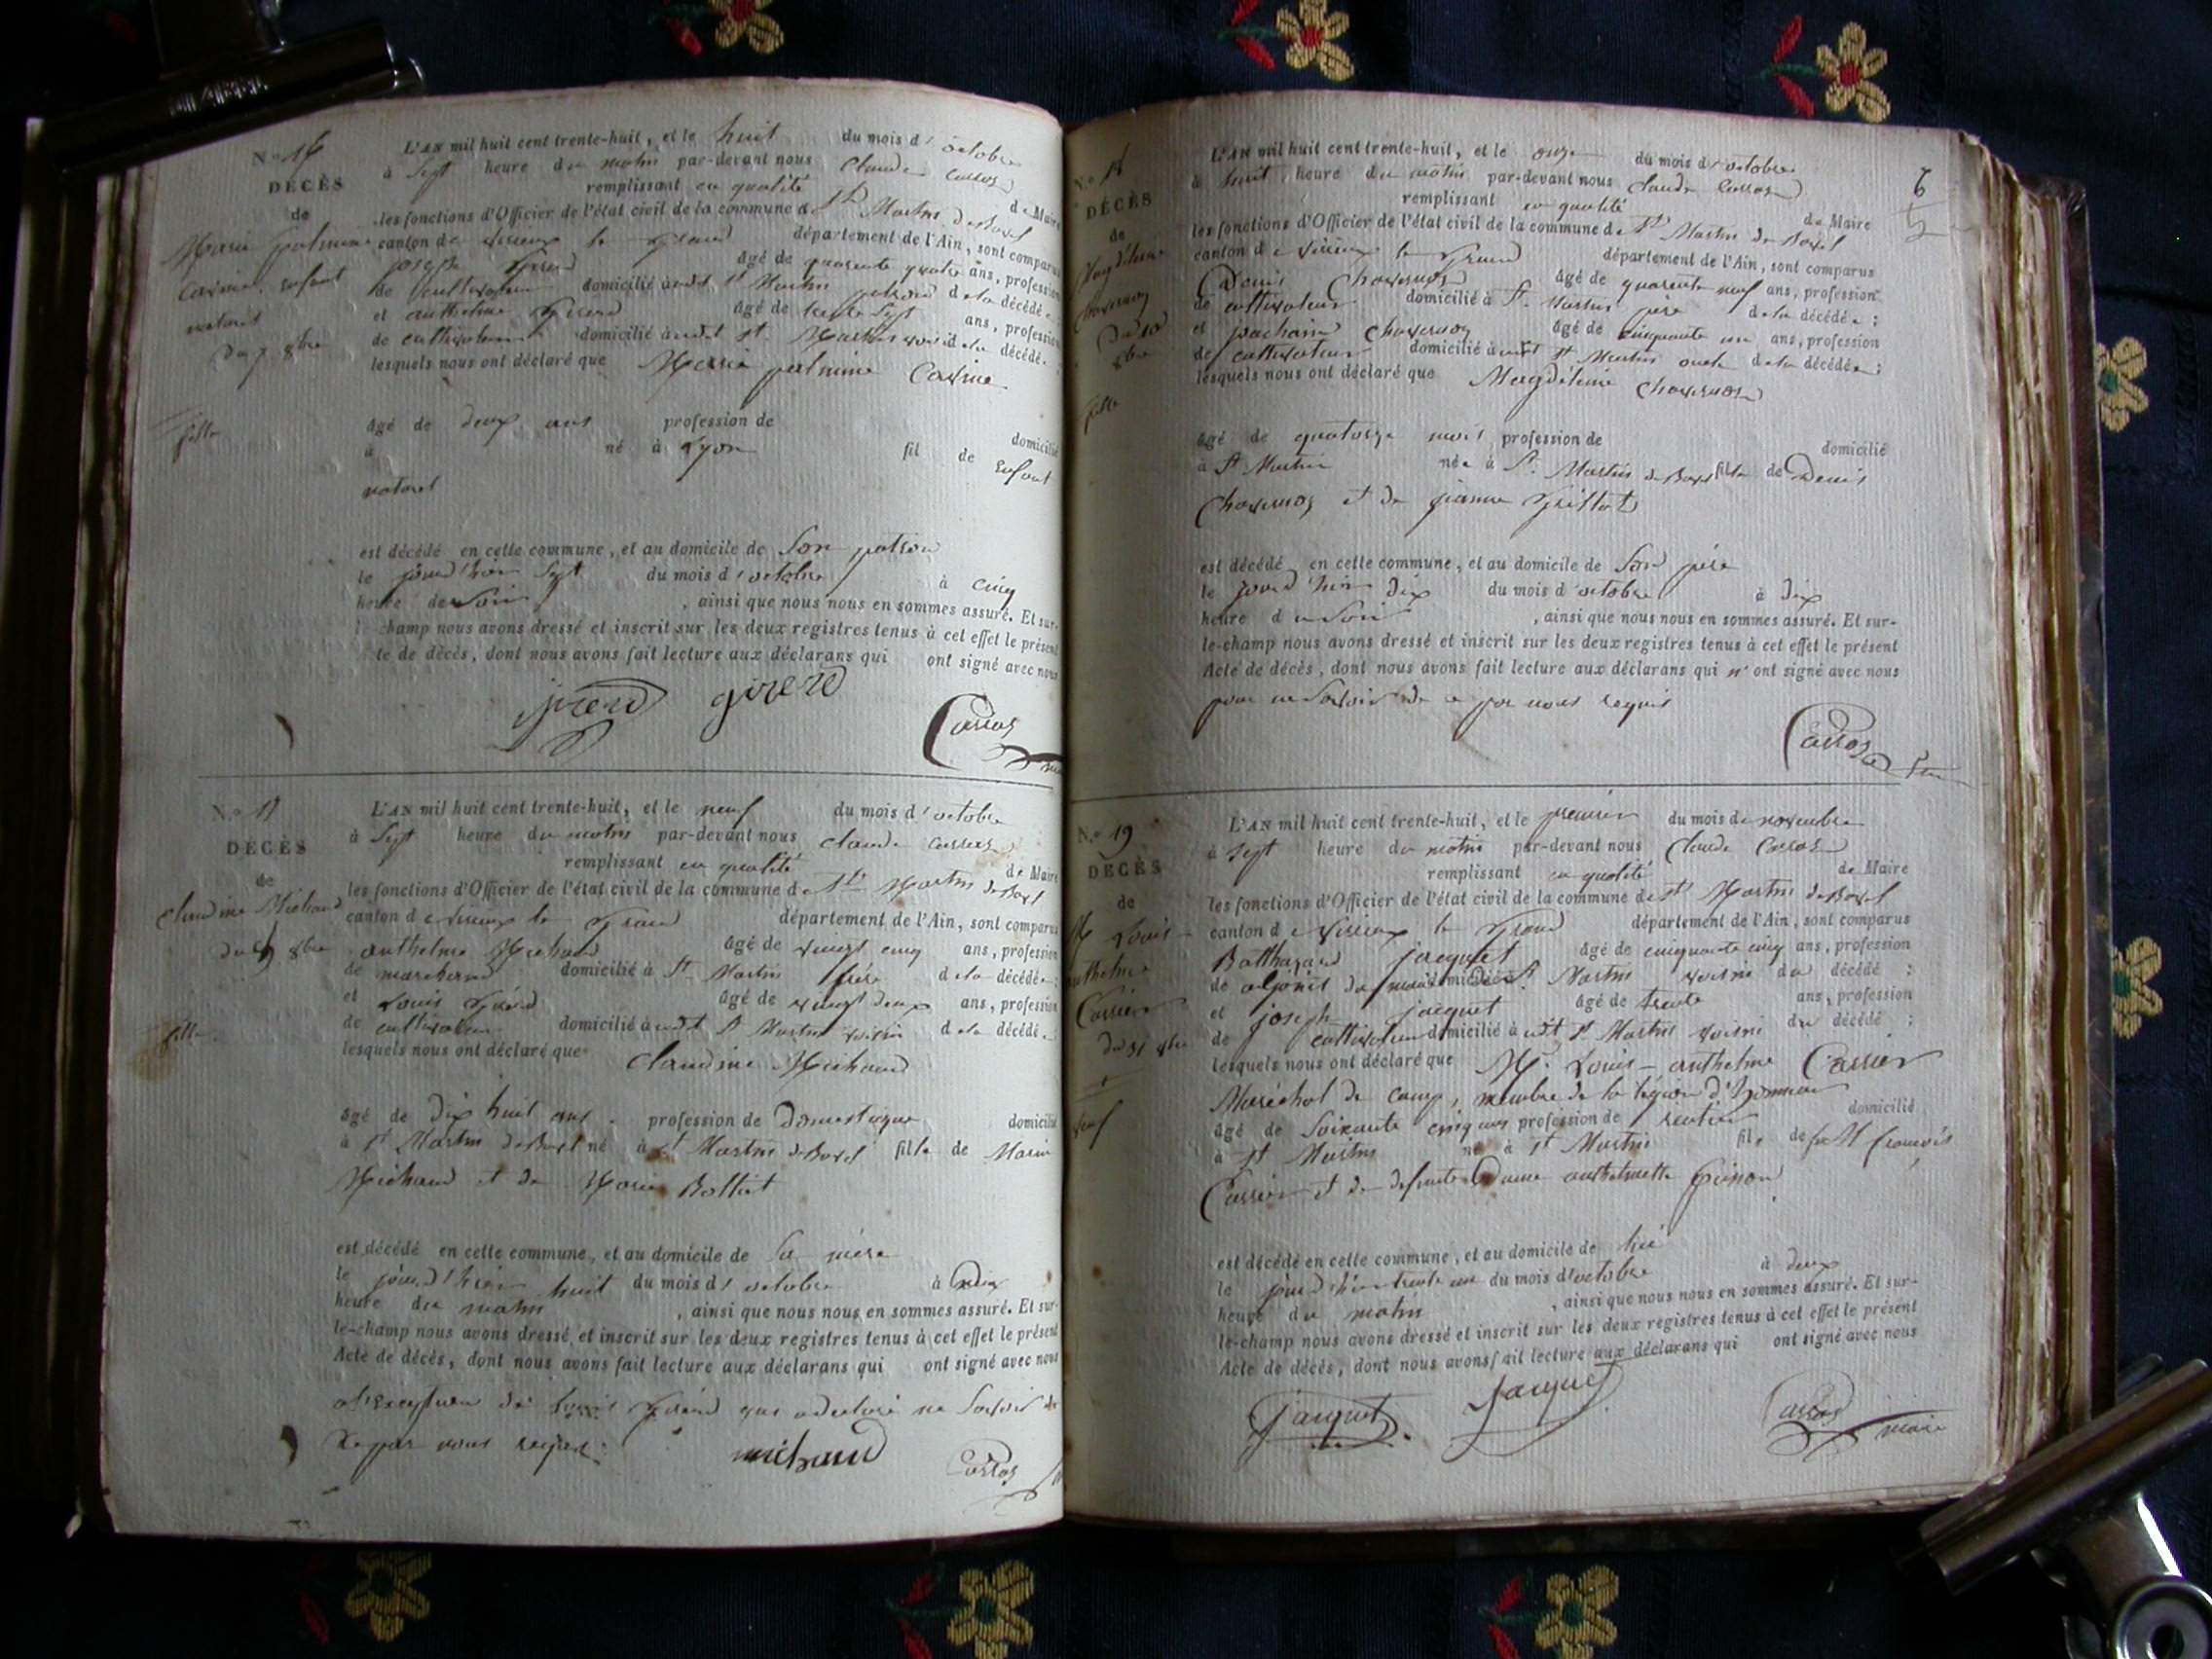 N.º 16
DÉCÈS
de
Marie palmire
Carine. Enfant
naturel
Du 7 8bre
fille
L'AN mil huit cent trente-huit, et le huit du mois d'octobre
à Sept heure du matin par-devant nous Claude Carros
remplissant en qualité de Maire
les fonctions d'Officier de l'état civil de la commune de St Martin de Bavel
canton de virieux le Grand département de l'Ain, sont comparus
joseph Girerd âgé de quarante quatre ans, profession
de cultivateur domicilié audt St Martin patron de la décédée;
et anthelme Girerd âgé de trente Sept ans, profession
de cultivateur domicilié audt St. Martin voisin de la décédée;
lesquels nous ont déclaré que Marie palmire Carine
âgé de deux ans profession de domicilié
à né à Lyon fil de Enfant
naturel
est décédé en cette commune, et au domicile de Son patron
le jour d'hier Sept du mois d'octobre à cinq
heure du Soir, ainsi que nous nous en sommes assuré. Et sur-
le-champ nous avons dressé et inscrit sur les deux registres tenus à cet effet le présent
Acte de décès, dont nous avons fait lecture aux déclarans qui ont signé avec nous
girerd Carros
N.º 17
DÉCÈS
de
Claudine Michaud
Du 9 8bre
fille
L'AN mil huit cent trente-huit, et le neuf du mois d'octobre
à Sept heure du matin par-devant nous Claude Carros
remplissant en qualité de Maire
les fonctions d'Officier de l'état civil de la commune de St Martin de Bavel
canton de virieux le Grand département de l'Ain, sont comparus
anthelme Michaud âgé de vingt cinq ans, profession
de marchand domicilié à St. Martin frère de la décédée;
et Louis Girerd âgé de vingt deux ans, profession
de cultivateur domicilié audt St Martin voisin de la décédée
lesquels nous ont déclaré que Claudine Michaud
âgé de dix huit ans profession de Domestique domicilié
à St Martin de Bavel né à St Martin de Bavel fille de Marin
Michaud et de Marie Bollit
est décédé en cette commune, et au domicile de Sa mère
le jour d'hier huit du mois d'octobre à
heure du matin, ainsi que nous nous en sommes assuré. Et sur-
le-champ nous avons dressé et inscrit sur les deux registres tenus à cet effet le présent
Acte de décès, dont nous avons fait lecture aux déclarans qui ont signé avec nous
à l'Exception de Louis Girerd qui a déclaré ne Savoir
de ce par nous requis.
michaud Carros
N.º 18
DÉCÈS
de
Magdeleine
Chavernoz
Du 10
8bre
fille
6
L'AN mil huit cent trente-huit, et le onze du mois d'octobre
à huit heure du matin par-devant nous Claude Carros
remplissant en qualité de Maire
les fonctions d'Officier de l'état civil de la commune de St Martin de Bavel
canton de virieux le Grand département de l'Ain, sont comparus
Denis Chavernoz âgé de quarante neuf ans, profession
de cultivateur domicilié à St. Martin père de la décédée;
et joachim Chavernoz âgé de cinquante un ans, profession
de cultivateur domicilié audt St Martin oncle de la décédée;
lesquels nous ont déclaré que Magdeleine Chavernoz
âgé de quatorze mois profession de domicilié
à St Martin née à St. Martin de Bavel fille de Denis
Chavernoz et de jeanne Grillot
est décédé en cette commune, et au domicile de Son père
le jour d'hier dix du mois d'octobre à dix
heure du Soir, ainsi que nous nous en sommes assuré. Et sur-
le-champ nous avons dressé et inscrit sur les deux registres tenus à cet effet le présent
Acte de décès, dont nous avons fait lecture aux déclarans qui n'ont signé avec nous
pour ne Savoir de ce par nous requis
Carros
N.º 19
DÉCÈS
de
M. Louis
anthelme
Carrier
Du 31 8bre
veuf
L'AN mil huit cent trente-huit, et le premier du mois de novembre
à Sept heure du matin par-devant nous Claude Carros
remplissant en qualité de Maire
les fonctions d'Officier de l'état civil de la commune de St Martin de Bavel
canton de virieux le Grand département de l'Ain, sont comparus
Balthazard jacquet âgé de cinquante cinq ans, profession
de adjoint du maire domicilié à St. Martin voisin du décédé;
et joseph jacquet âgé de trente ans, profession
de cultivateur domicilié audt St Martin voisin du décédé;
lesquels nous ont déclaré que M. Louis-anthelme Carrier
Maréchal de camp, membre de la légion d'honneur
âgé de Soixante cinq ans profession de rentier domicilié
à St Martin né à St Martin fils de feu M françois
Carrier et de defunte Dame anthelmette
est décédé en cette commune, et au domicile de lui
le jour d'hier trente un du mois d'octobre à deux
heure du matin, ainsi que nous nous en sommes assuré. Et sur-
le-champ nous avons dressé et inscrit sur les deux registres tenus à cet effet le présent
Acte de décès, dont nous avons fait lecture aux déclarans qui ont signé avec nous
jacquet Jacquet Carros maire